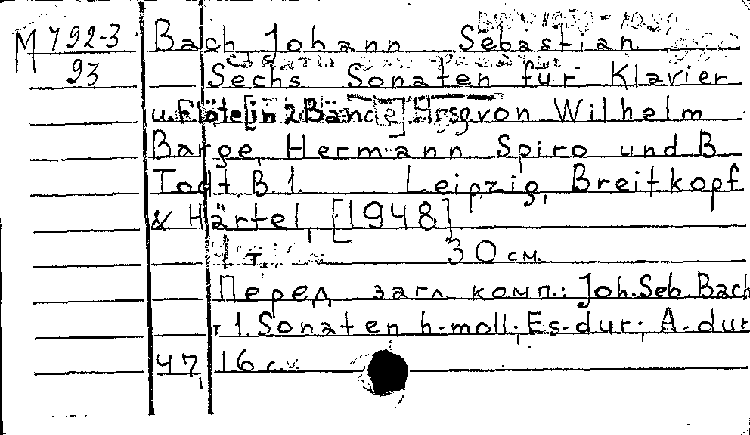 M 792-3 Bach Johann Sebastian
93 Sechs Sonaten für Klavier
u. Flöte [in 2 Bände] Hrsg von Wilhelm
Barge, Hermann Spiro und B.
Todt. B. 1. Leipzig, Breitkopf
& Härtel, [1948]
1 т. 30 см.
Перед загл. комп.: Joh. Seb. Bach
т 1. Sonaten h-moll; Es-dur; A-dur
47, 16 с.